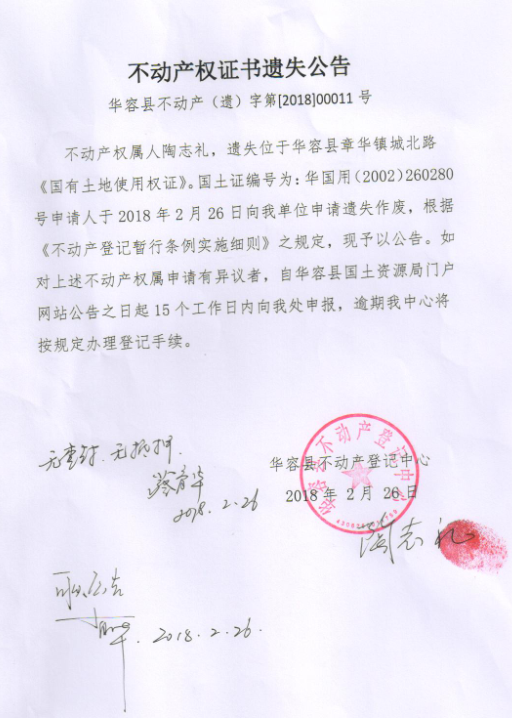 不动产权证书遗失公告
华容县不动产（遗）字第[2018]00011 号
不动产权属人陶志礼，遗失位于华容县章华镇城北路
《国有土地使用权证》。国土证编号为：华国用(2002)260280
号申请人于 2018 年 2 月 26 日向我单位申请遗失作废，根据
《不动产登记暂行条例实施细则》之规定，现予以公告。如
对上述不动产权属申请有异议者，自华容县国土资源局门户
网站公告之日起 15 个工作日内向我处申报，逾期我中心将
按规定办理登记手续。
无查封、无抵押
2018.2.26
华容县不动产登记中心
2018 年 2 月 26 日
华容县不动产登记中心
陶志礼
2018.2.26.